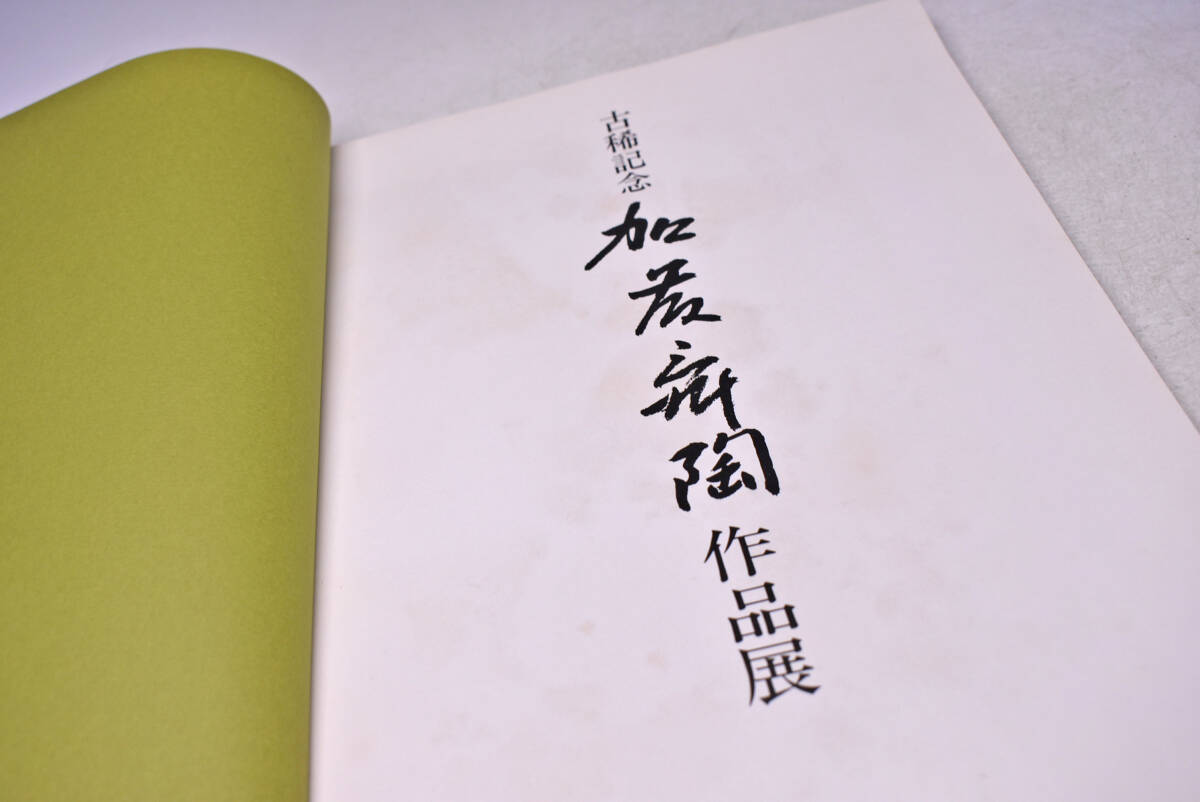 古稀記念 加藤舜陶 作品展